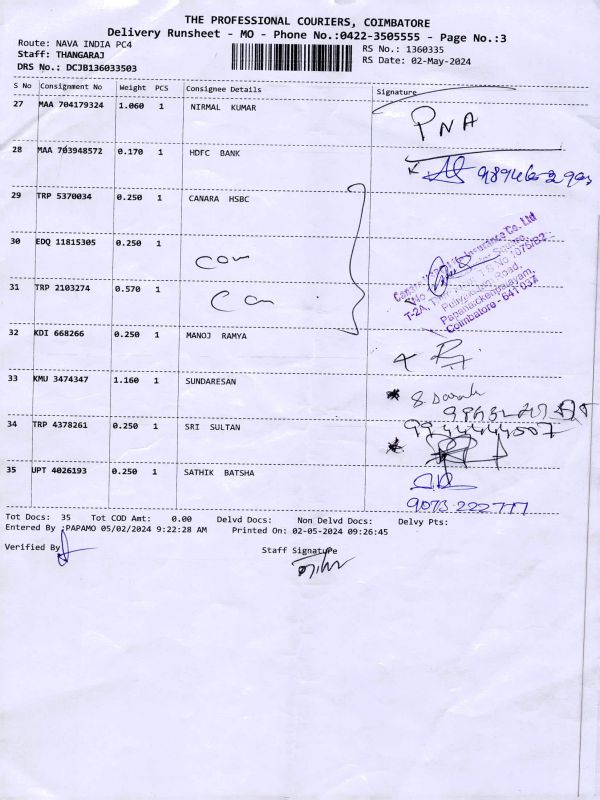 THE PROFESSIONAL COURIERS, COIMBATORE
Delivery Runsheet - MO - Phone No.:0422-3505555 - Page No.:3
Route: NAVA INDIA PC4
RS No.: 1360335
Staff: THANGARAJ
RS Date: 02-May-2024
DRS No.: DCJB136033503
S No Consignment No Weight PCS Consignee Details Signature
27 MAA 704179324 1.060 1 NIRMAL KUMAR PNA
28 MAA 703948572 0.170 1 HDFC BANK
29 TRP 5370034 0.250 1 CANARA HSBC
30 EDQ 11815305 0.250 1
31 TRP 2103274 0.570 1
Insurance Co. Ltd
Puliyakulam Road,
Pappanaickenpalayam,
Coimbatore - 641 037
32 KDI 668266 0.250 1 MANOJ RAMYA
33 KMU 3474347 1.160 1 SUNDARESAN
34 TRP 4378261 0.250 1 SRI SULTAN
35 UPT 4026193 0.250 1 SATHIK BATSHA
Tot Docs: 35 Tot COD Amt: 0.00 Delvd Docs: Non Delvd Docs: Delvy Pts:
Entered By :PAPAMO 05/02/2024 9:22:28 AM Printed On: 02-05-2024 09:26:45
Verified By
Staff Signature